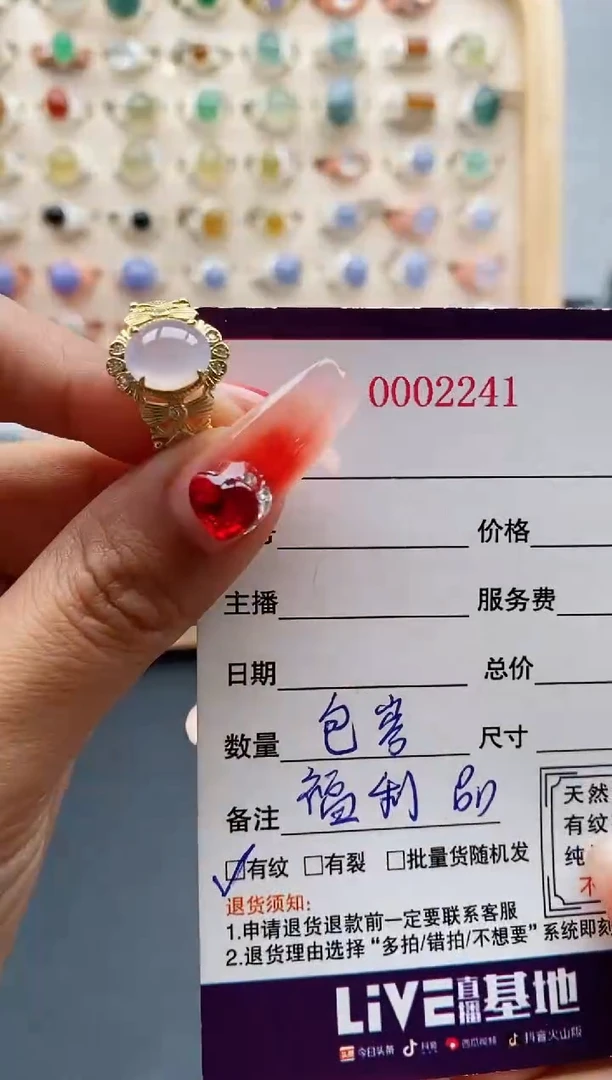 0002241
价格
主播 服务费
日期 总价
数量 包害 尺寸
备注 福利品
有纹 有裂 批量货随机发
天然
有纹
纯
不
退货须知:
1.申请退货退款前一定要联系客服
2.退货理由选择“多拍/错拍/不想要”系统即刻
LiVE直播基地
头条 今日头条 抖音 西瓜视频 抖音火山版